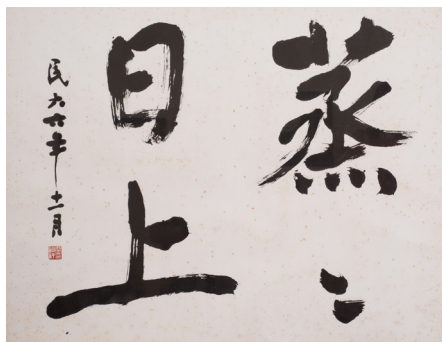 蒸〻
日上
民九六年十一月